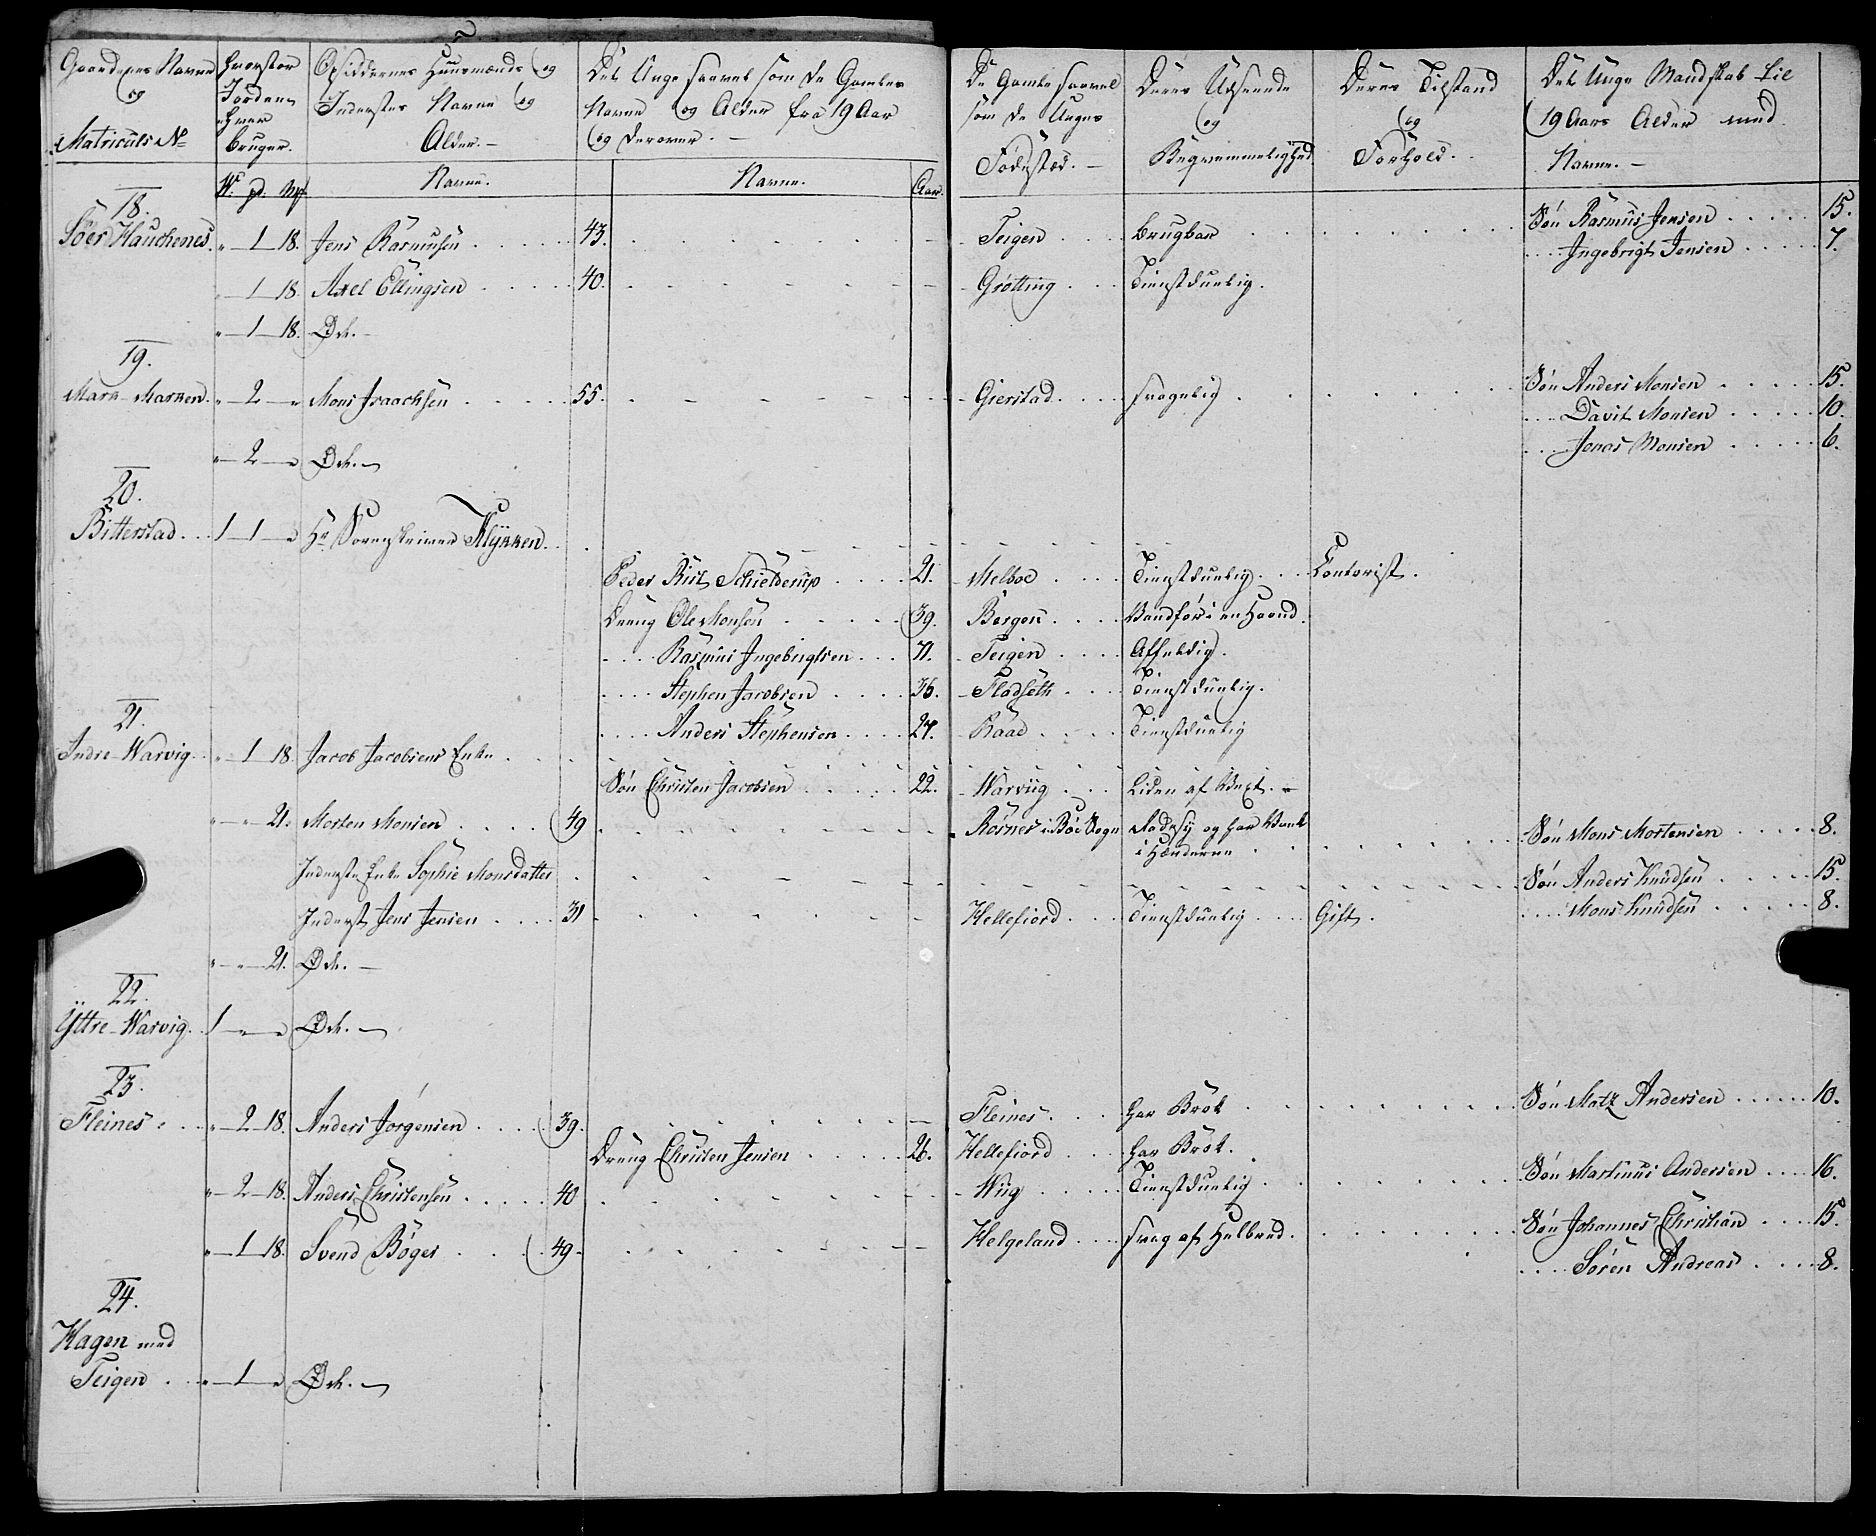 Gaardenes Navne og Matriculs No
hvorstor Jorden hver bruger.
W. pd. Mk
Opsiddernes Huusmænds og Inderstes Navne og Alder. —
Navne.
Det Unge saavel som de Gamles Navne og Alder fra 19 Aar og derover. —
Navne. Aar.
De Gamle saavel som de Unges Fødested. —
Deres Udseende og Beqvemmelighed.
Deres Tilstand og Forhold.
Det Unge Mandskab til 19 Aars Alder med Navne. —
18.
Söer Hauchenes. " 1 18. Jens Rasmusen 43. Teigen brugbar Søn Rasmus Jensen 15.
Ingebrigt Jensen 7.
" 1 18. Axel Ellingsen 40. Grøtting Tienstduelig.
" 1 18. Øde. —
19.
Mark-Marken. " 2 " Mons Isaachsen 55. Gierstad svagelig Søn Anders Monsen 15.
Davit Monsen 10.
Jonas Monsen 6.
" 2 " Øde. —
20.
Bitterstad. 1 1 " Hr. Sorenskriver Klykken.
Peder Rist Schielderup 21. Melboe Tienstduelig Contorist.
Dreng Ole Monsen 39. Bergen Vanfør i en Haand.
Rasmus Ingebrigtsen 71. Teigen Affeldig.
Stephen Jacobsen 36. Flodseth Tienstduelig.
Anders Stephensen 27. Raad Tienstduelig
21.
Indre-Warvig. " 1 18. Jacob Jacobsens Enke
Søn Christen Jacobsen 22. Warviig Liden af Vext. —
" " 21. Morten Monsen 49 Røsnes i Bøe Sogn Radesyg og har Værk i Hænderne Søn Mons Mortensen 8.
Inderste Enke Sophie Monsdatter Søn Anders Knudsen 15.
Mons Knudsen 8.
Inderst Jens Jensen 31 Hellefiord Tienstduelig Gift.
" " 21. Øde. —
22.
Yttre-Warvig. 1 " " Øde. —
23.
Fleines. " 2 18. Anders Jørgensen 39. Fleines. har Brok Søn Matz Andersen 10.
Dreng Christen Jensen 26. Hellefiord har Brok.
" 2 18. Anders Christensen 40 Wiig Tienstduelig Søn Martinus Andersen 16.
" 1 18. Svend Bøger 49 Helgeland svag af Helbred. Søn Johannes Christian 15.
Søren Andreas 8.
24.
Hagen med Teigen " 1 " Øde. —